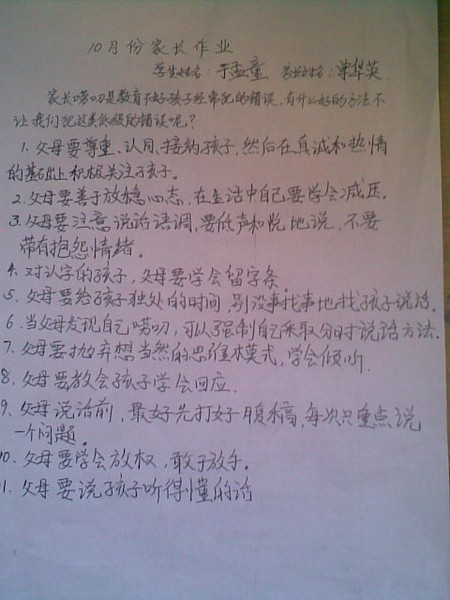 10月份家长作业
学生姓名：于孟童 家长姓名：单华英
家长唠叨是教育不好孩子经常犯的错误，有什么好的方法不
让我们犯这类低级的错误呢？
1. 父母要尊重、认同、接纳孩子，然后在真诚和热情
的基础上积极关注孩子。
2. 父母要善于放稳心态，在生活中自己要学会减压。
3. 父母要注意说话语调，要低声和悦地说，不要
带有抱怨情绪。
4. 对认字的孩子，父母要学会留字条。
5. 父母要给孩子独处的时间，别没事找事地找孩子说话。
6. 当父母发现自己唠叨，可以强制自己采取分时说话方法.
7. 父母要抛弃想当然的思维模式，学会倾听.
8. 父母要教会孩子学会回应.
9. 父母说话前，最好先打好腹稿，每次只重点说
一个问题。
10. 父母要学会放权，敢于放手。
11. 父母要说孩子听得懂的话